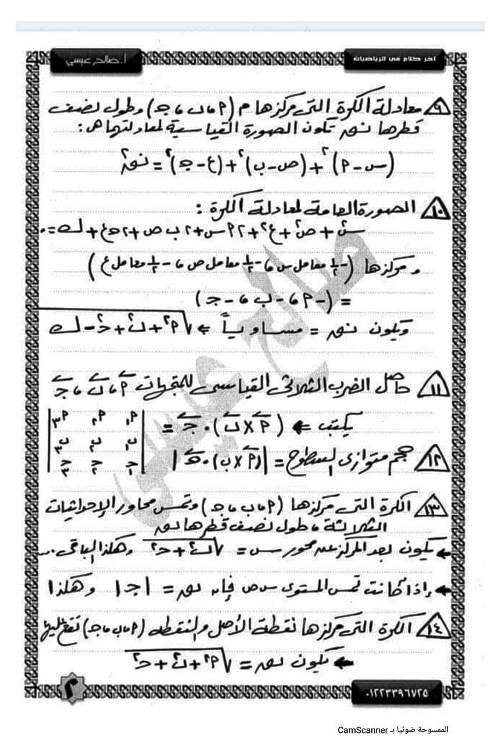 آخر كلام في الرياضيات
أ. صالح عيسى
٩ معادلة الكرة التى مركزها م (٩ ، ب ، جـ) وطول نصف
قطرها نق تكون الصورة القياسية لمعادلتها هى :
(س - ٩)² + (ص - ب)² + (ع - جـ)² = نق²
١٠ الصورة العامة لمعادلة الكرة :
س² + ص² + ع² + ٢٩س + ٢ب ص + ٢جـ ع + ك = ٠
ومركزها (-½ معامل س ، -½ معامل ص ، -½ معامل ع)
= (-٩ ، -ب ، -جـ)
ويكون نق = مساوياً ← √(٩² + ب² + جـ² - ك)
١١ حاصل الضرب الثلاثى القياسى للمتجهات ٩ ، ب ، جـ
يكتب ← (٩ × ب) . جـ = | ٩١ ٩٢ ٩٣
ب١ ب٢ ب٣
جـ١ جـ٢ جـ٣ |
١٢ حجم متوازى السطوح = |(٩ × ب) . جـ|
١٣ الكرة التى مركزها (٩ ، ب ، جـ) وتمس محاور الإحداثيات
الثلاثة ، طول نصف قطرها نق
← يكون بعد المركز عن محور س = √(ب² + جـ²) وهكذا الباقى ..
← وإذا كانت تمس المستوى س ص فإن نق = |جـ| وهكذا
١٤ الكرة التى مركزها نقطة الأصل والنقطة (٩ ، ب ، جـ) تقع عليها
← يكون نق = √(٩² + ب² + جـ²)
٠١٢٢٣٣٩٦٧٢٥
٣
الممسوحة ضوئيا بـ CamScanner